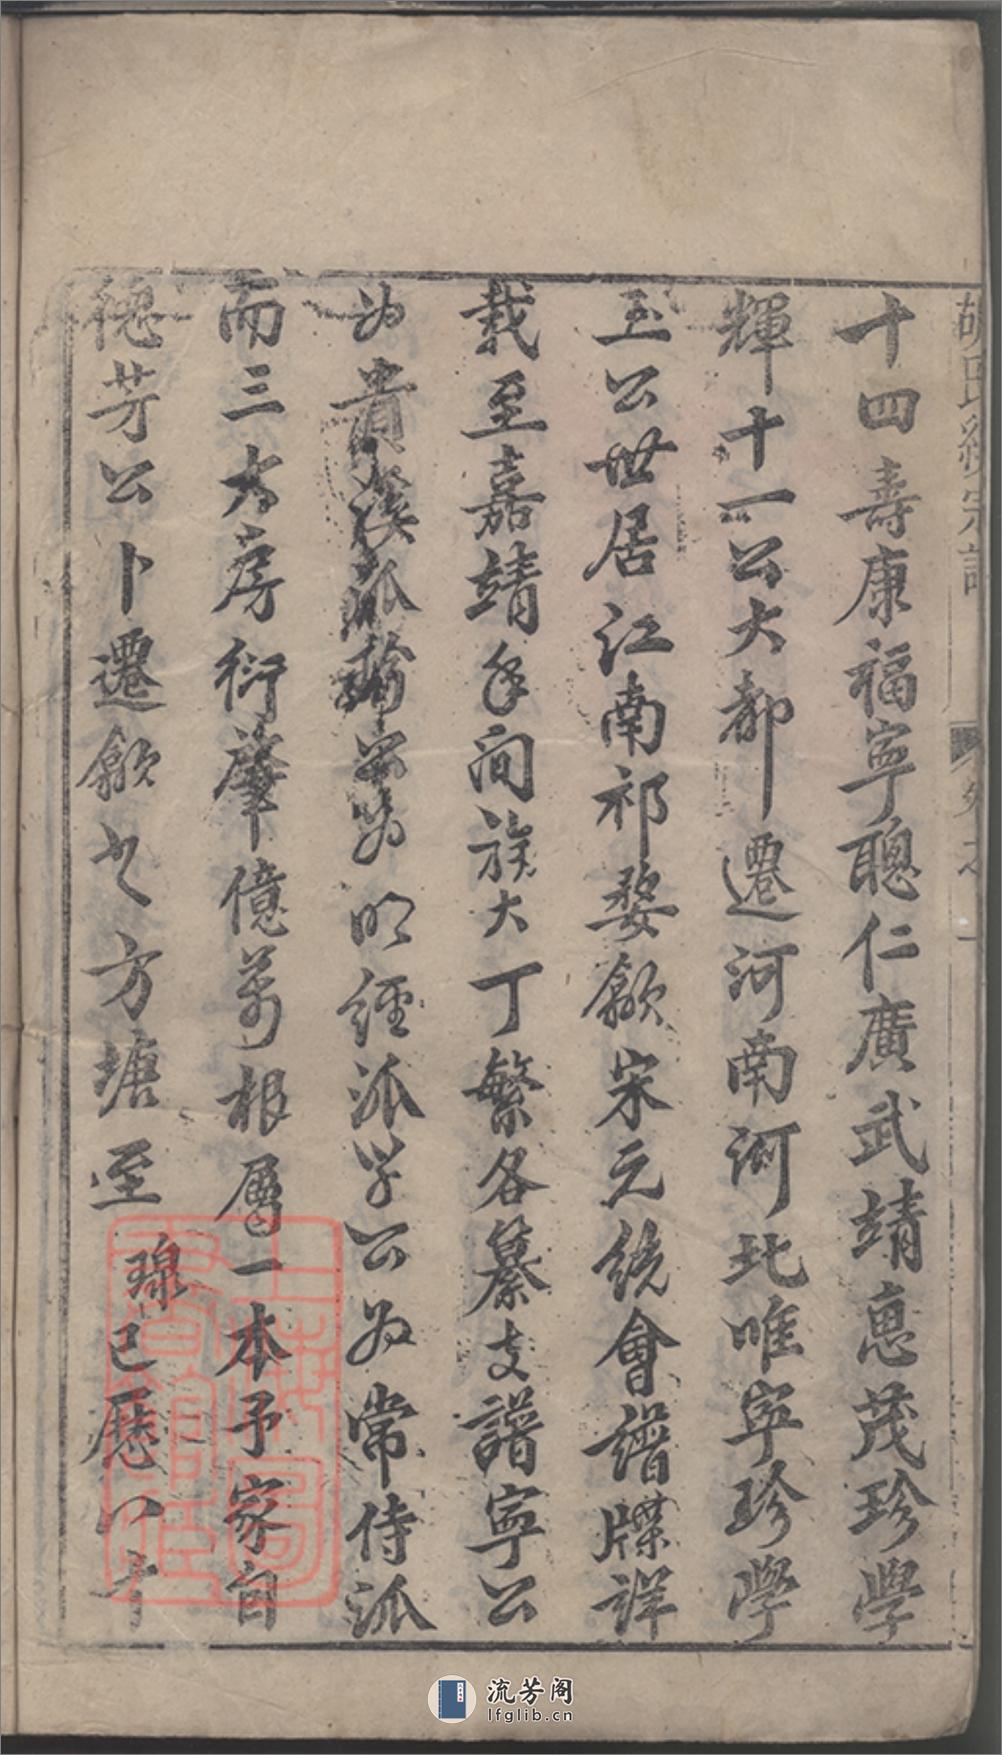 十四壽康福寧聰仁廣武靖惠茂珍學
輝十一公大都遷河南河北唯寧珍學
五公世居江南祁婺歙宋元統會譜牒詳
載至嘉靖年间族大丁繁各纂支譜寧公
为貴溪派珍公为明經派学公为常侍派
而三大房衍肇億萬根屬一本予家自
德芳公卜遷歙之方塘至
璟已歷八十
胡氏統宗譜 卷之一
上海圖書館藏
流芳阁
lfglib.cn